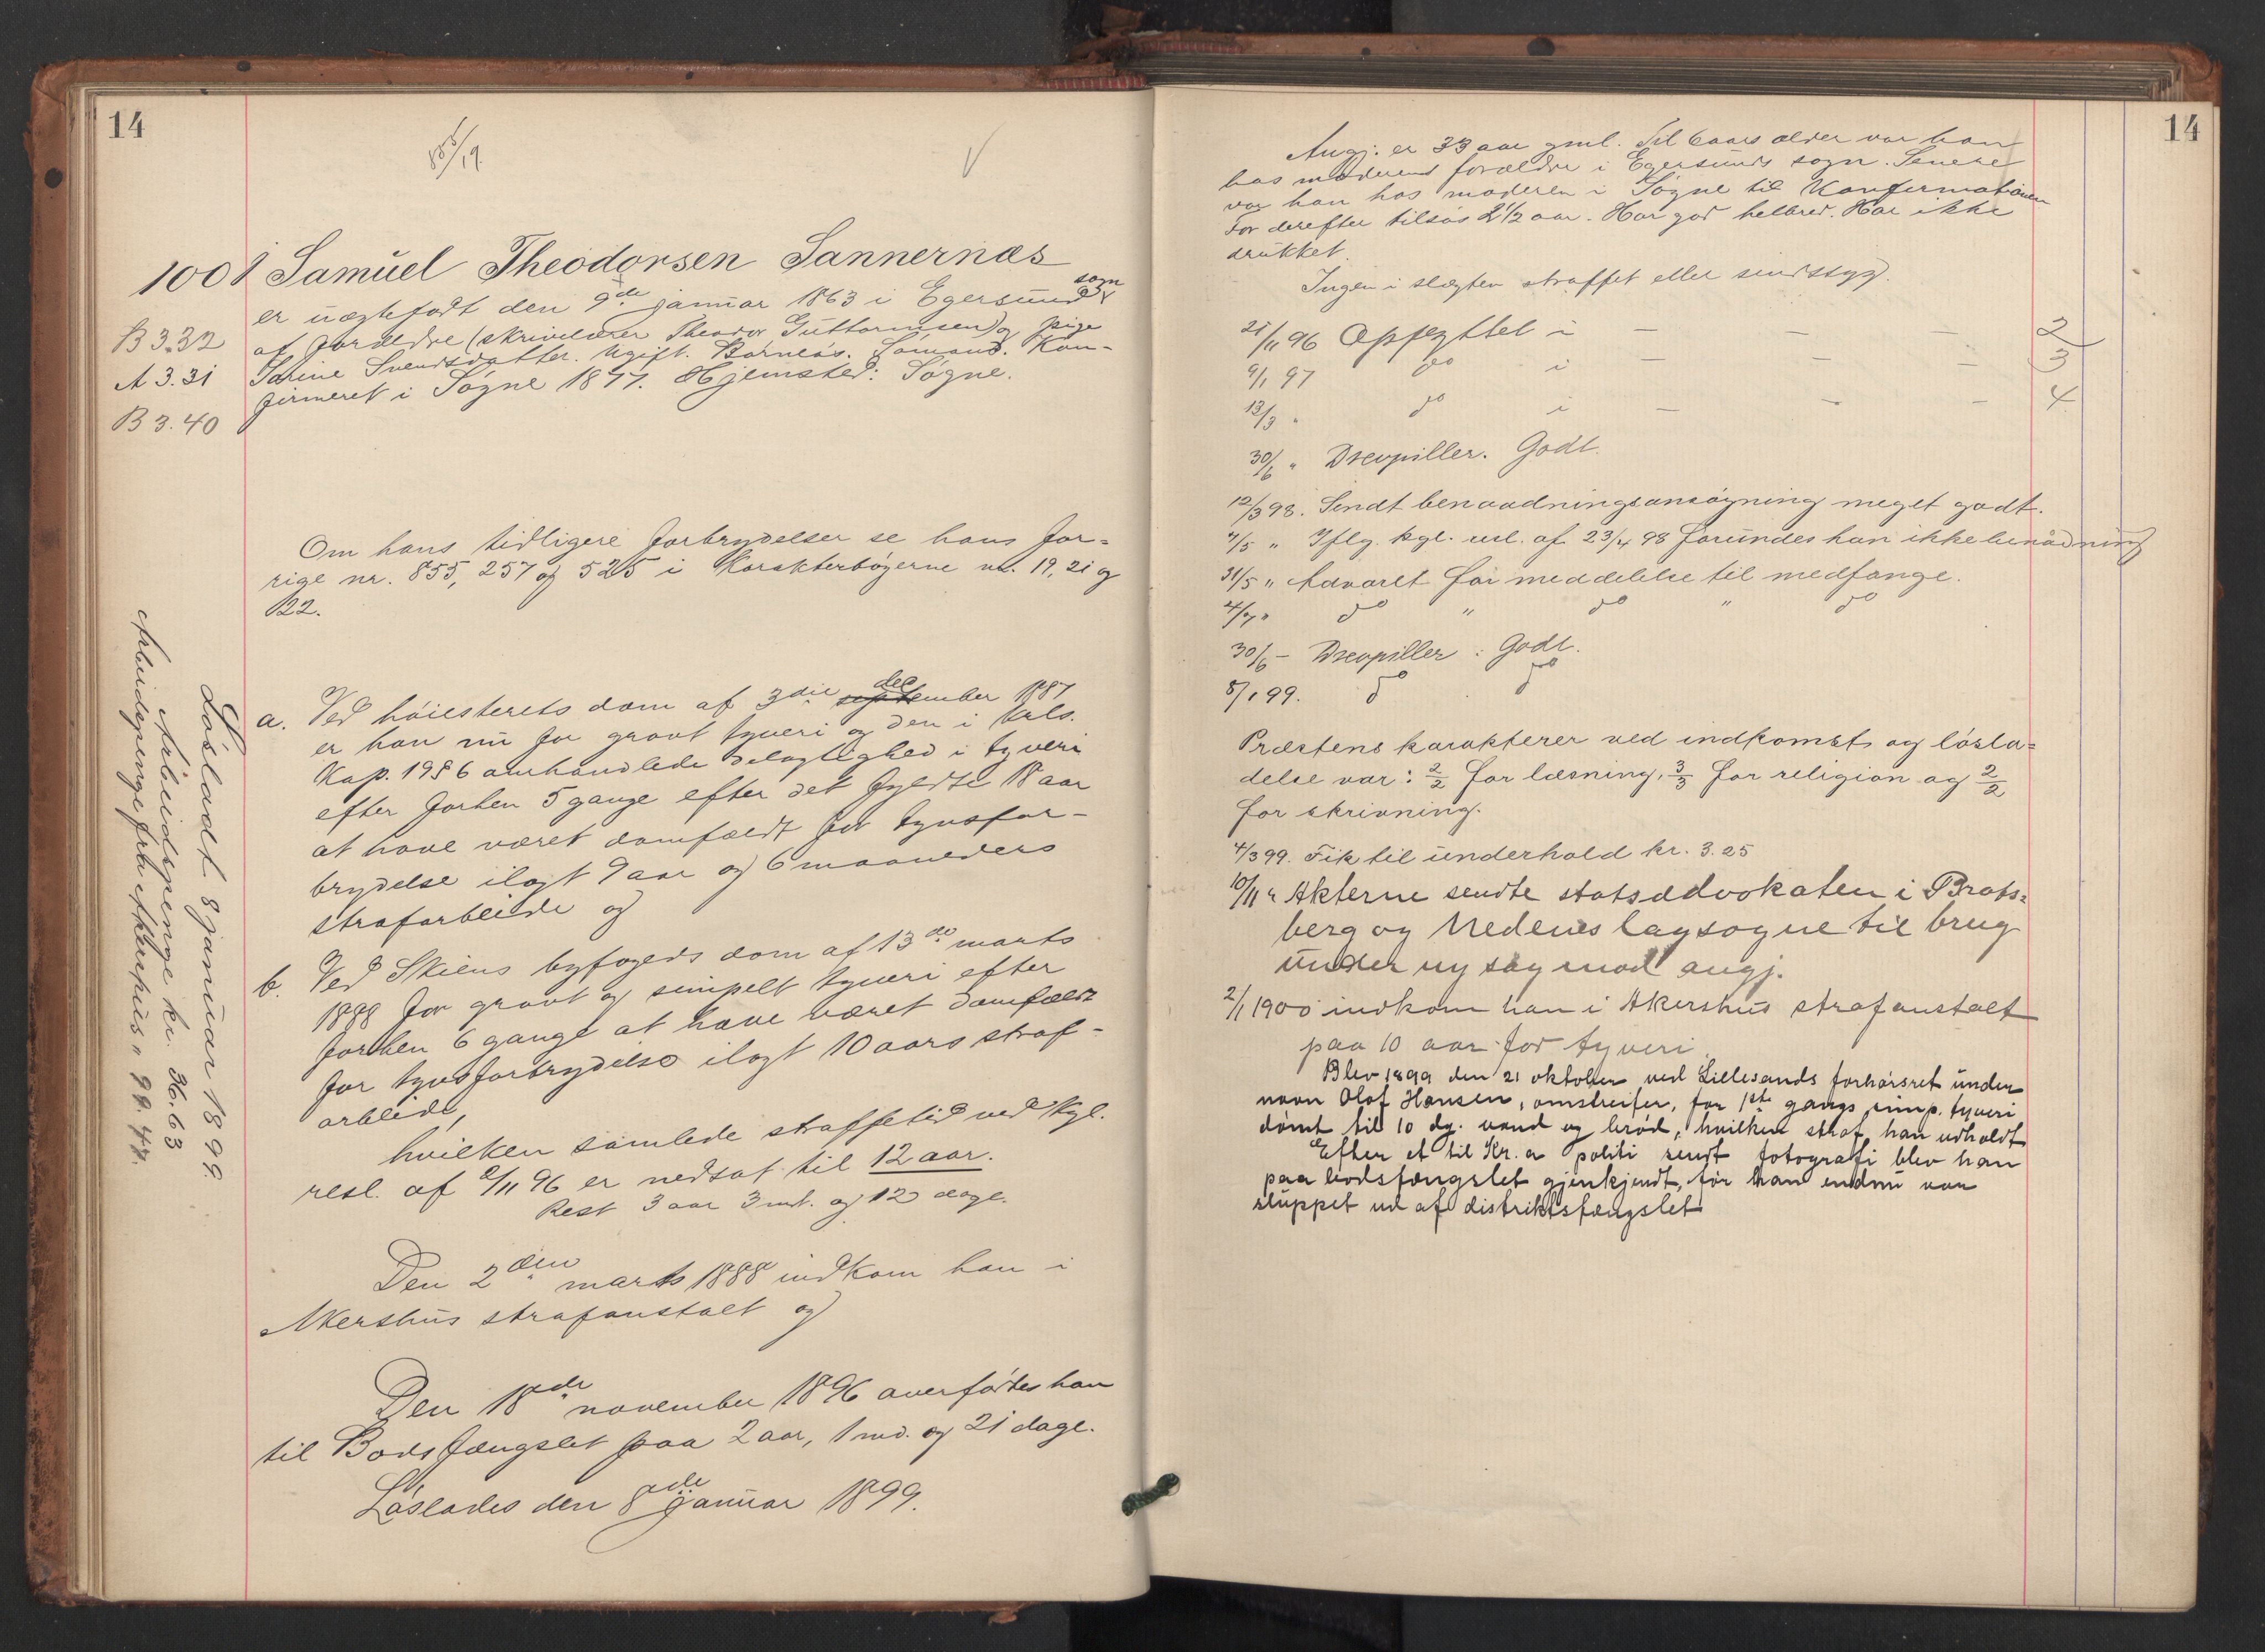 14
855/19.
1001 Samuel Theodorsen Sannernæs
er uægte født den 9de januar 1863 i Egersund sogn
af forældre (skrivelærer Theodor Guttormsen) og pige
Sarine Svendsdatter. Ugift. Barnløs. Sømand. Kon-
firmeret i Søgne 1877. Hjemsted: Søgne.
B 3.32
A 3.31
B 3.40
Om hans tidligere forbrydelser se hans for-
rige nr. 855, 257 og 525 i Karakterbøgerne nr. 19, 21 og
22.
a. Ved høiesterets dom af 3die september dec 1887
er han nu for grovt tyveri og den i krls.
Kap. 19 § 6 omhandlede delagtighed i tyveri
efter forhen 5 gange efter det fyldte 18 aar
at have været domfældt for tyvsfor-
brydelse ilagt 9 aar og 6 maaneders
strafarbeide og
b. Ved Skiens byfogeds dom af 13de marts
1888 for grovt og simpelt tyveri efter
forhen 6 gange at have været domfældt
for tyvsforbrydelse ilagt 10 aars straf-
arbeide,
hvilken samlede straffetid ved kgl.
resl. af 2/11 96 er nedsat til 12 aar.
Rest 3 aar 3 mt. og 12 dage.
Den 2den marts 1888 indkom han i
Akershus strafanstalt og
Den 18de november 1896 overførtes han
til Bodsfængslet paa 2 aar, 1 md. og 21 dage.
Løslades den 8de januar 1899.
Løsladt 8 januar 1899.
Arbeidspenge kr. 36.63
Arbeidspenge fra Akershus „ 98.44.
14
Angj. er 33 aar gml. Til 6 aars alder var han
hos moderens forældre i Egersunds sogn. Senere
var han hos moderen i Søgne til Konfirmationen
For derefter tilsøs 2 1/2 aar. Har god helbred. Har ikke
drukket.
Ingen i slægten straffet eller sindssyg.
21/11 96 Opflyttet i — — — 2
9/1 97 do i — — — 3
13/3 " do i — — — 4
30/6 " Drevpiller. Godt.
12/3 98. Sendt benaadningsansøgning meget godt.
7/5 " Iflg. kgl. resl. af 23/4 98 forundes han ikke benådning
31/5 " Advaret for meddelelse til medfange.
4/7 " do " do " do
30/6 – Drevpiller: Godt.
8/1 99. do do
Præstens karakterer ved indkomst og løsla-
delse var: 2/2 for læsning, 3/3 for religion og 2/2
for skrivning.
4/3 99. Fik til underhold kr. 3.25
10/11 " Akterne sendte statsadvokaten i Brats-
berg og Nedenes lagsogne til brug
under ny sag mod angj.
2/1 1900 indkom han i Akershus strafanstalt
paa 10 aar for tyveri.
Blev 1899 den 21 oktober ved Lillesands forhørsret under
navn Olof Hansen, omstreifer, for 1ste gangs simp. tyveri
dømt til 10 dg. vand og brød, hvilken straf han udholdt
Efter et til Kr.a politi sendt fotografi blev han
paa bodsfængslet gjenkjendt, før han endnu var
sluppet ud af distriktsfængslet